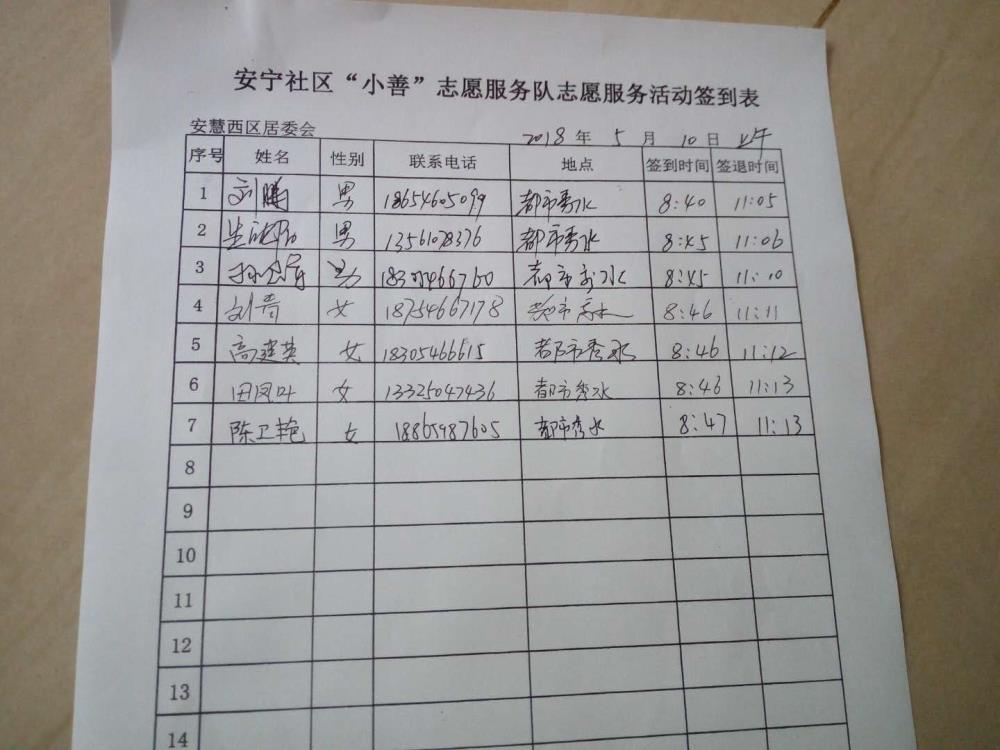 安宁社区“小善”志愿服务队志愿服务活动签到表
安慧西区居委会 2018 年 5 月 10 日 上午
序号 姓名 性别 联系电话 地点 签到时间 签退时间
1 刘鹏 男 18654605099 都市秀水 8:40 11:05
2 男 都市秀水 8:45 11:06
3 男 都市秀水 8:45 11:10
4 刘青 女 18754667178 都市秀水 8:46 11:11
5 高建英 女 18305466615 都市秀水 8:46 11:12
6 田凤叶 女 13325047436 都市秀水 8:46 11:13
7 陈卫艳 女 18865987605 都市秀水 8:47 11:13
8
9
10
11
12
13
14